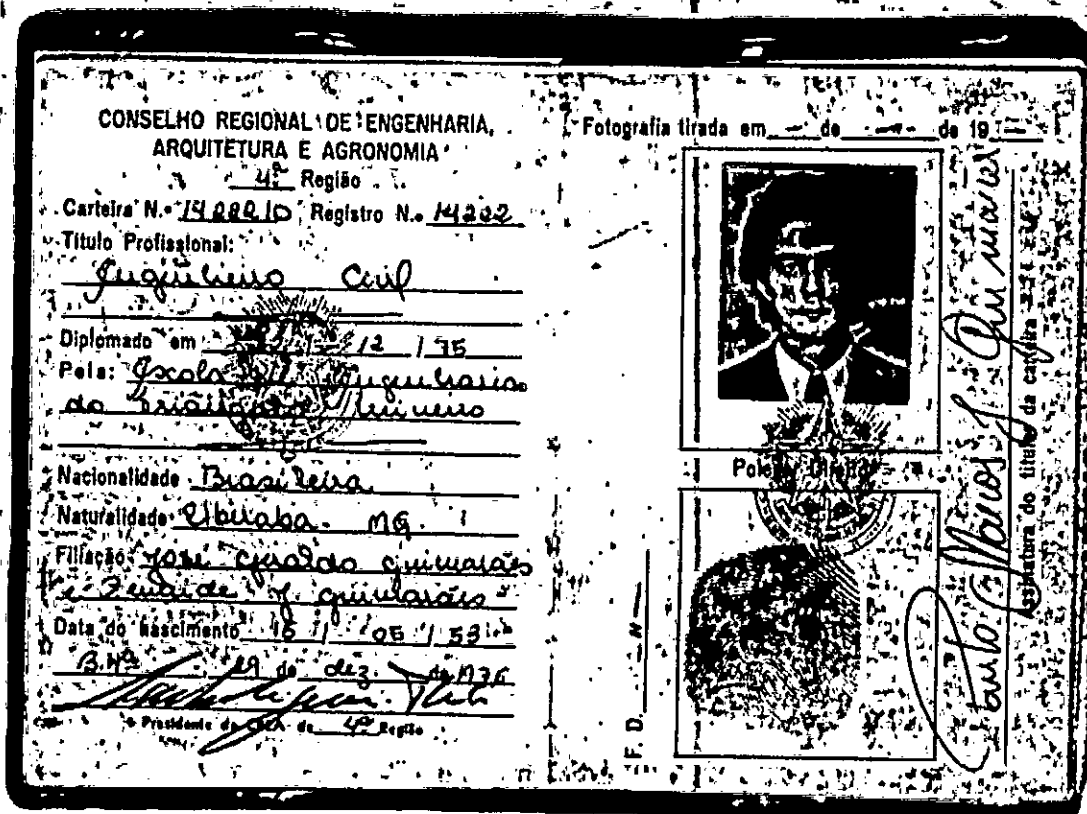 CONSELHO REGIONAL DE ENGENHARIA,
ARQUITETURA E AGRONOMIA
4ª Região
Carteira N.º Registro N.º 14202
Título Profissional:
Civil
Diplomado em 12 / 75
Pela: Escola
do
Nacionalidade Brasileira
Naturalidade MG.
Filiação: José Guimarães
e J Guimarães
Data do nascimento 16 / 05 / 53
19 de dez de 1976
o Presidente do CREA da 4ª Região
Fotografia tirada em de de 19
Polegar Direito
F. D.
Paulo Marcos J Guimarães
Assinatura do titular da carteira